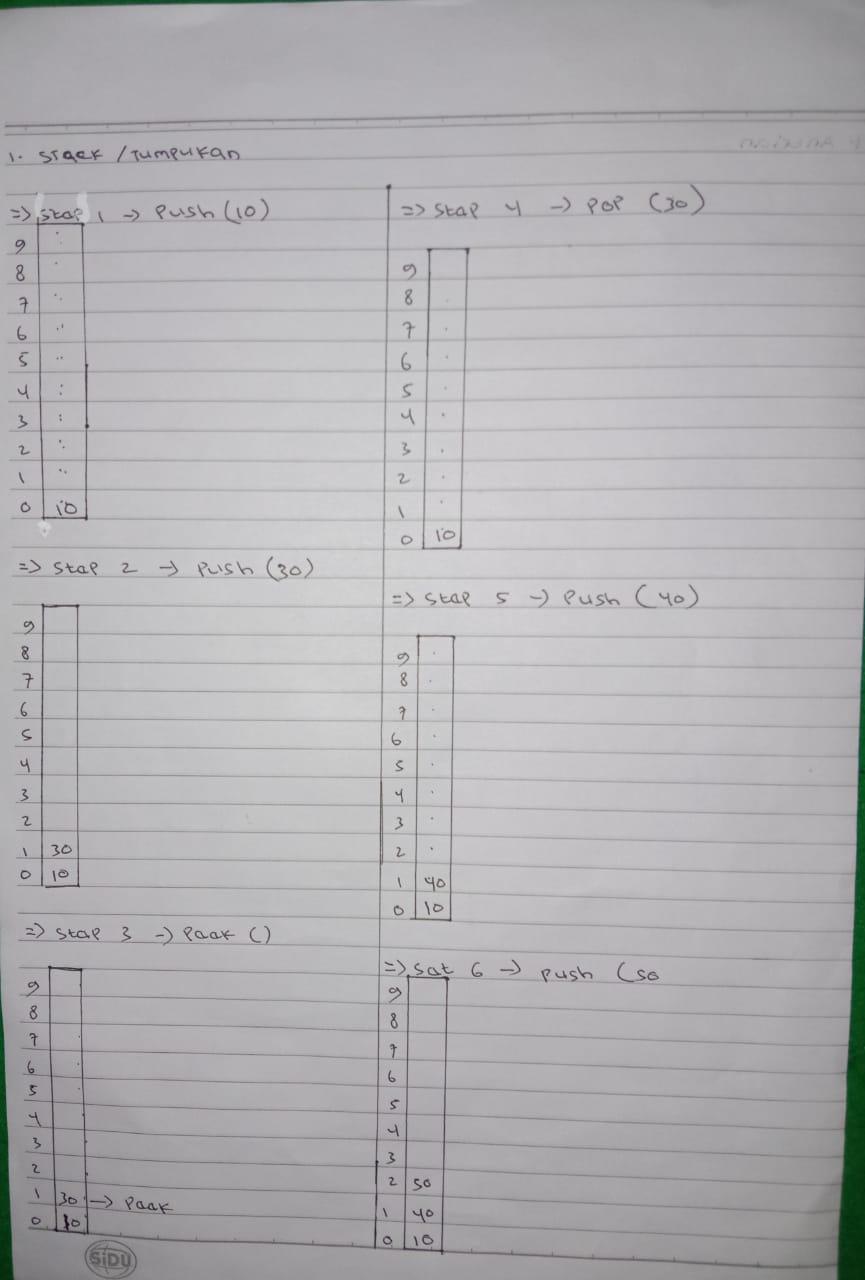 1. Stack / Tumpukan
=> Stap 1 -> Push (10)
9
8
7
6
5
4
3
2
1
0 10
=> Stap 2 -> Push (30)
9
8
7
6
5
4
3
2
1 30
0 10
=> Stap 3 -> Paak ()
9
8
7
6
5
4
3
2
1 30 -> Paak
0 10
=> Stap 4 -> POP (30)
9
8
7
6
5
4
3
2
1
0 10
=> Stap 5 -> Push (40)
9
8
7
6
5
4
3
2
1 40
0 10
=> Sat 6 -> push (50
9
8
7
6
5
4
3
2 50
1 40
0 10
SiDU